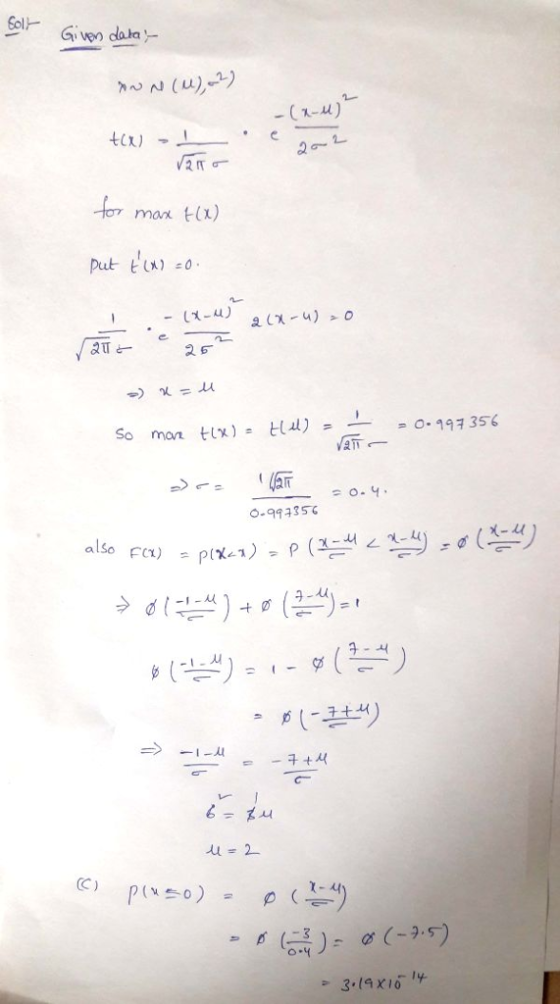 Sol:-
Given data:-
x ~ N(μ, σ²)
f(x) = 1/(√2π σ) · e^(-(x-μ)²/2σ²)
for max f(x)
put f'(x) = 0.
1/(√2π σ) · e^(-(x-μ)²/2σ²) 2(x-μ) = 0
⇒ x = μ
So max f(x) = f(μ) = 1/(√2π σ) = 0.997356
⇒ σ = 1/√2π / 0.997356 = 0.4.
also F(x) = P(X<x) = P((x-μ)/σ < (x-μ)/σ) = ø((x-μ)/σ)
⇒ ø((-1-μ)/σ) + ø((7-μ)/σ) = 1
ø((-1-μ)/σ) = 1 - ø((7-μ)/σ)
= ø((-7+μ)/σ)
⇒ (-1-μ)/σ = (-7+μ)/σ
μ = 2
(C) P(x≤0) = ø((x-μ)/σ)
= ø(-3/0.4) = ø(-7.5)
= 3.19×10^-14